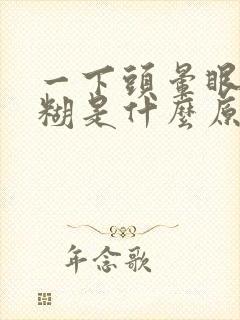 一下頭暈眼
糊是什麼原
年念歌